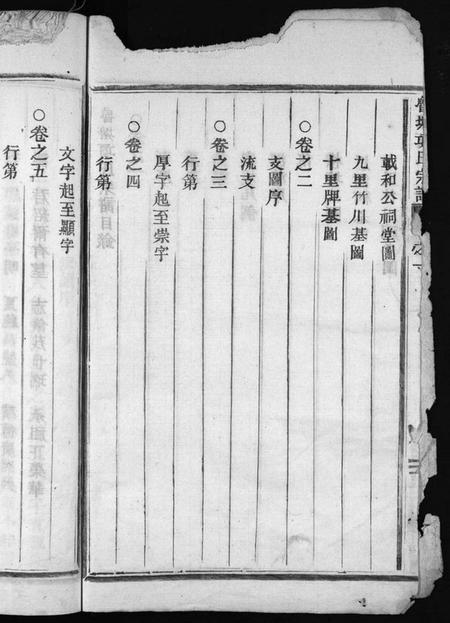 載和公祠堂圖
九里竹川基圖
十里牌基圖
○卷之二
支圖序
流支
○卷之三
行第
厚字起至崇字
○卷之四
行第
文字起至顯字
○卷之五
行第